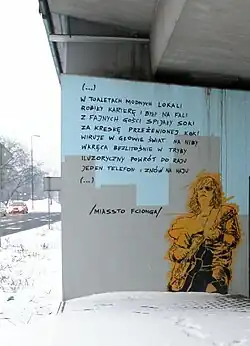 (...)
W TOALETACH MODNYCH LOKALI
ROBIĄ KARIERĘ I BYĆ NA FALI
Z FAJNYCH GOŚCI SPIJAŁY SOKI
ZA KRESKĘ PRZEŻENIONEJ KOKI
WIRUJE W GŁOWIE ŚWIAT NA NIBY
WKRĘCA BEZLITOŚNIE W TRYBY
ILUZORYCZNY POWRÓT DO RAJU
JEDEN TELEFON I ZNÓW NA HAJU
(...)
/MIASSTO FCIONGA/